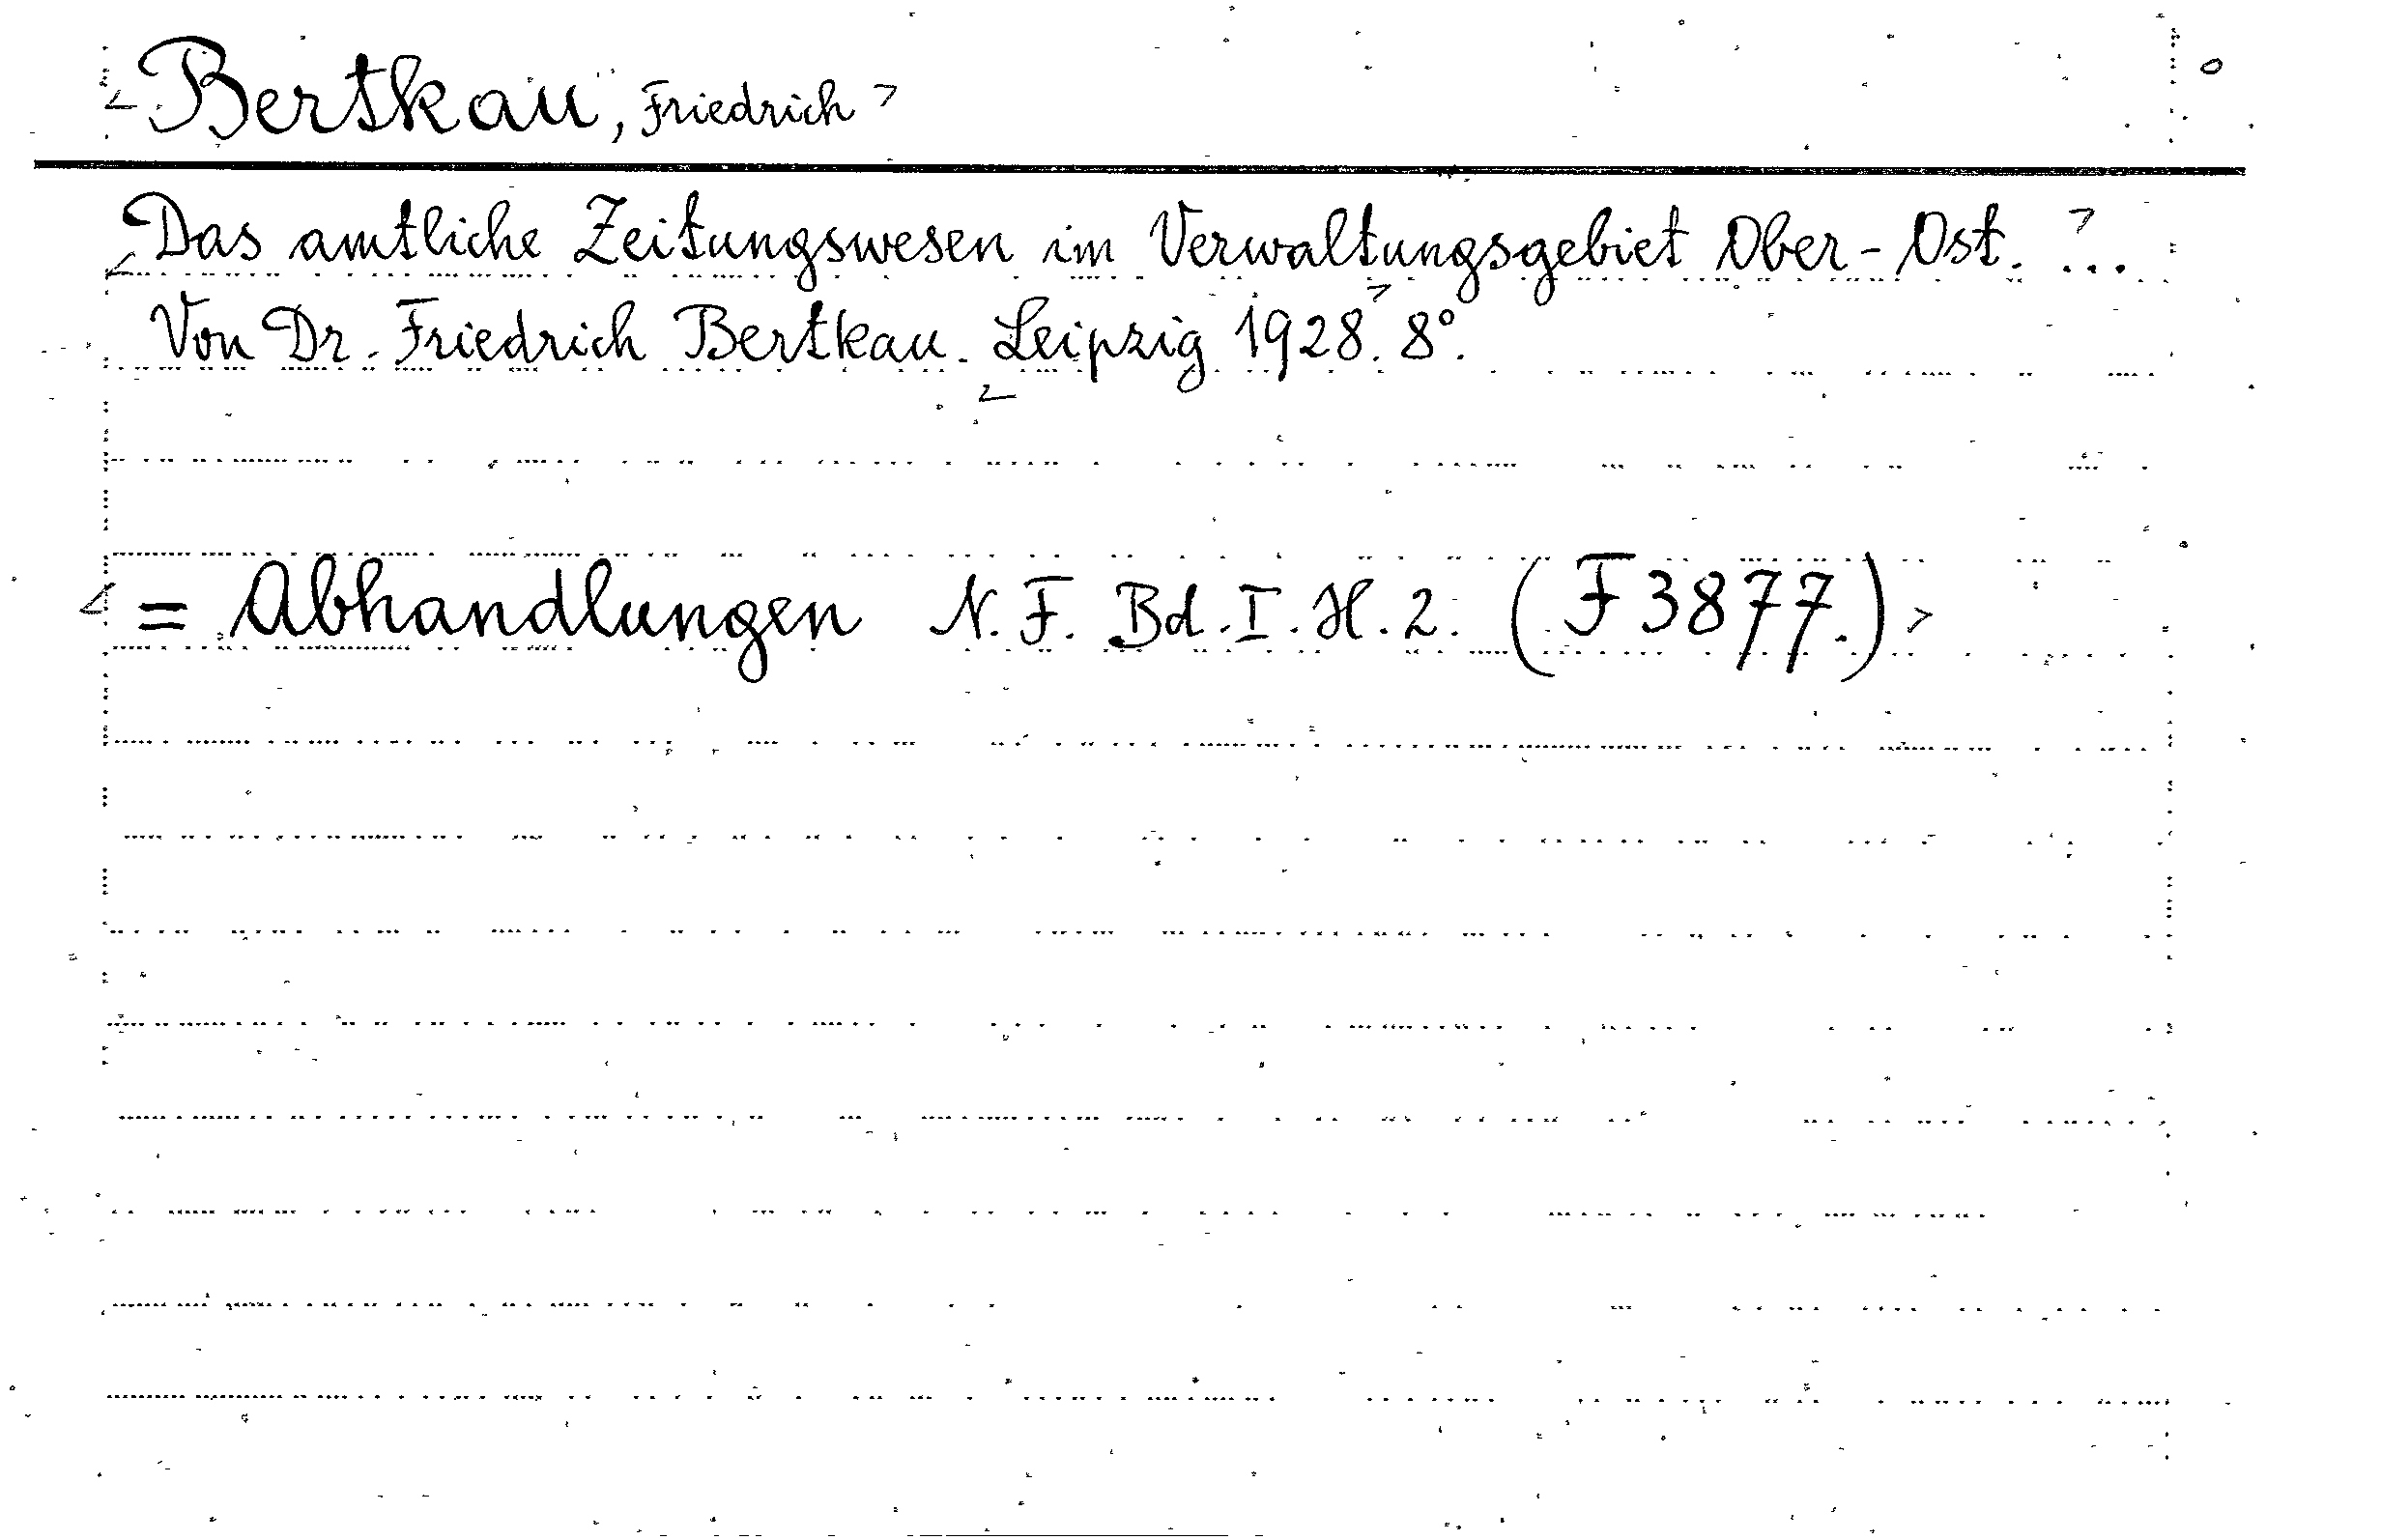 Bertkau, Friedrich
Das amtliche Zeitungswesen im Verwaltungsgebiet Ober-Ost. ...
Von Dr. Friedrich Bertkau. Leipzig 1928. 8°.
= Abhandlungen N. F. Bd. I. H. 2. (F 3877.)